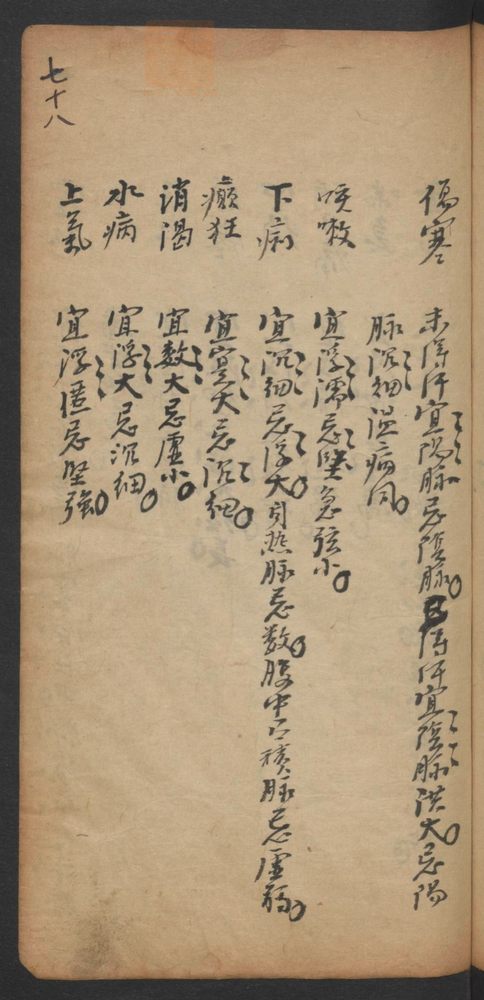 七十八
傷寒 未得汗宜陽脉忌陰脉。已得汗宜陰脉洪大。忌陽
脉沉細温病同。
咳嗽 宜浮濡忌堅急弦小。
下痢 宜沉細忌浮大。身熱脉忌数。腹中有積脉忌虛弱。
癲狂 宜實大忌沉細。
消渴 宜数大忌虛小。
水病 宜浮大忌沉細。
上氣 宜浮匿忌堅強。